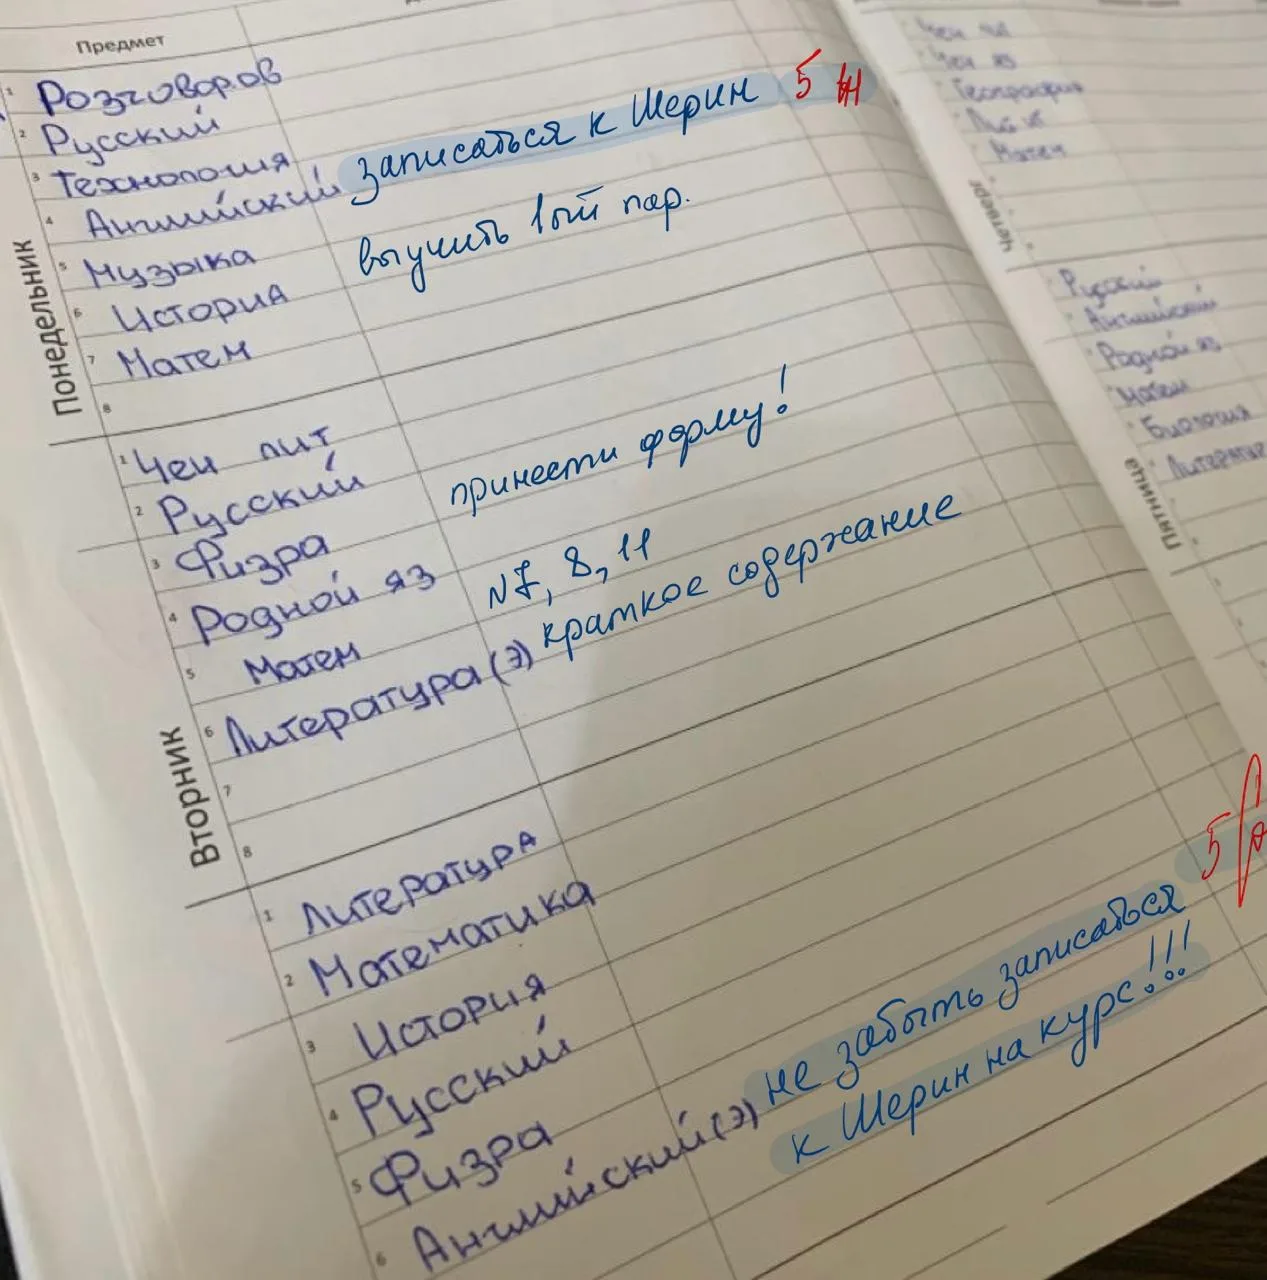 Предмет
1 Розговоров
2 Русский
3 Технология
4 Английский записаться к Шерин 5
5 Музыка
6 История выучить 1ый пар.
7 Матем
8
Понедельник
1 Чеч лит
2 Русский
3 Физра принести форму!
4 Родной яз
5 Матем №7, 8, 11
6 Литература (э) краткое содержание
7
8
Вторник
1 Литература
2 Математика
3 История
4 Русский
5 Физра
6 Английский (э) не забыть записаться 5
к Шерин на курс!!!
Чеч яз
География
Матем
Четверг
Русский
Английский
Родной яз
Матем
Биология
Пятница